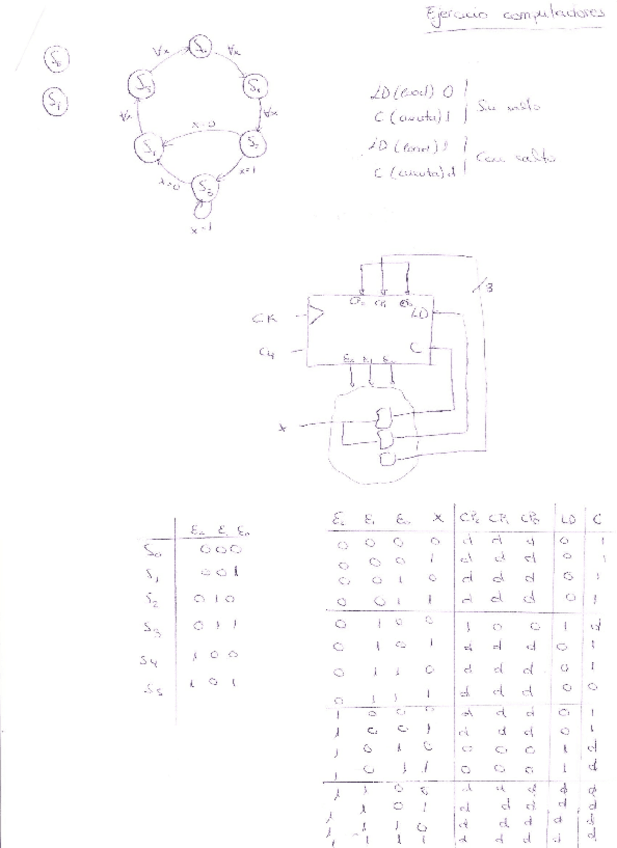 Ejercicio computadores
S0
S1
∀x
∀x
S1
S5
∀x
∀x
x=0
S4
S2
x=0
S3
x=1
x=1
LD (load) 0
C (cuenta) 1
Sin salto
LD (load) 1
C (cuenta) d
Con salto
3
CP2 CP1 CP0
LD
CK
C
E2 E1 E0
x
E2 E1 E0
S0 000
S1 001
S2 010
S3 011
S4 100
S5 101
E2 E1 E0 X CP2 CP1 CP0 LD C
0 0 0 0 d d d 0 1
0 0 0 1 d d d 0 1
0 0 1 0 d d d 0 1
0 0 1 1 d d d 0 1
0 1 0 0 1 0 0 1 d
0 1 0 1 d d d 0 1
0 1 1 0 d d d 0 1
0 1 1 1 d d d 0 0
1 0 0 0 d d d 0 1
1 0 0 1 d d d 0 1
1 0 1 0 0 0 0 1 d
1 0 1 1 0 0 0 1 d
1 1 0 0 d d d d d
1 1 0 1 d d d d d
1 1 1 0 d d d d d
1 1 1 1 d d d d d